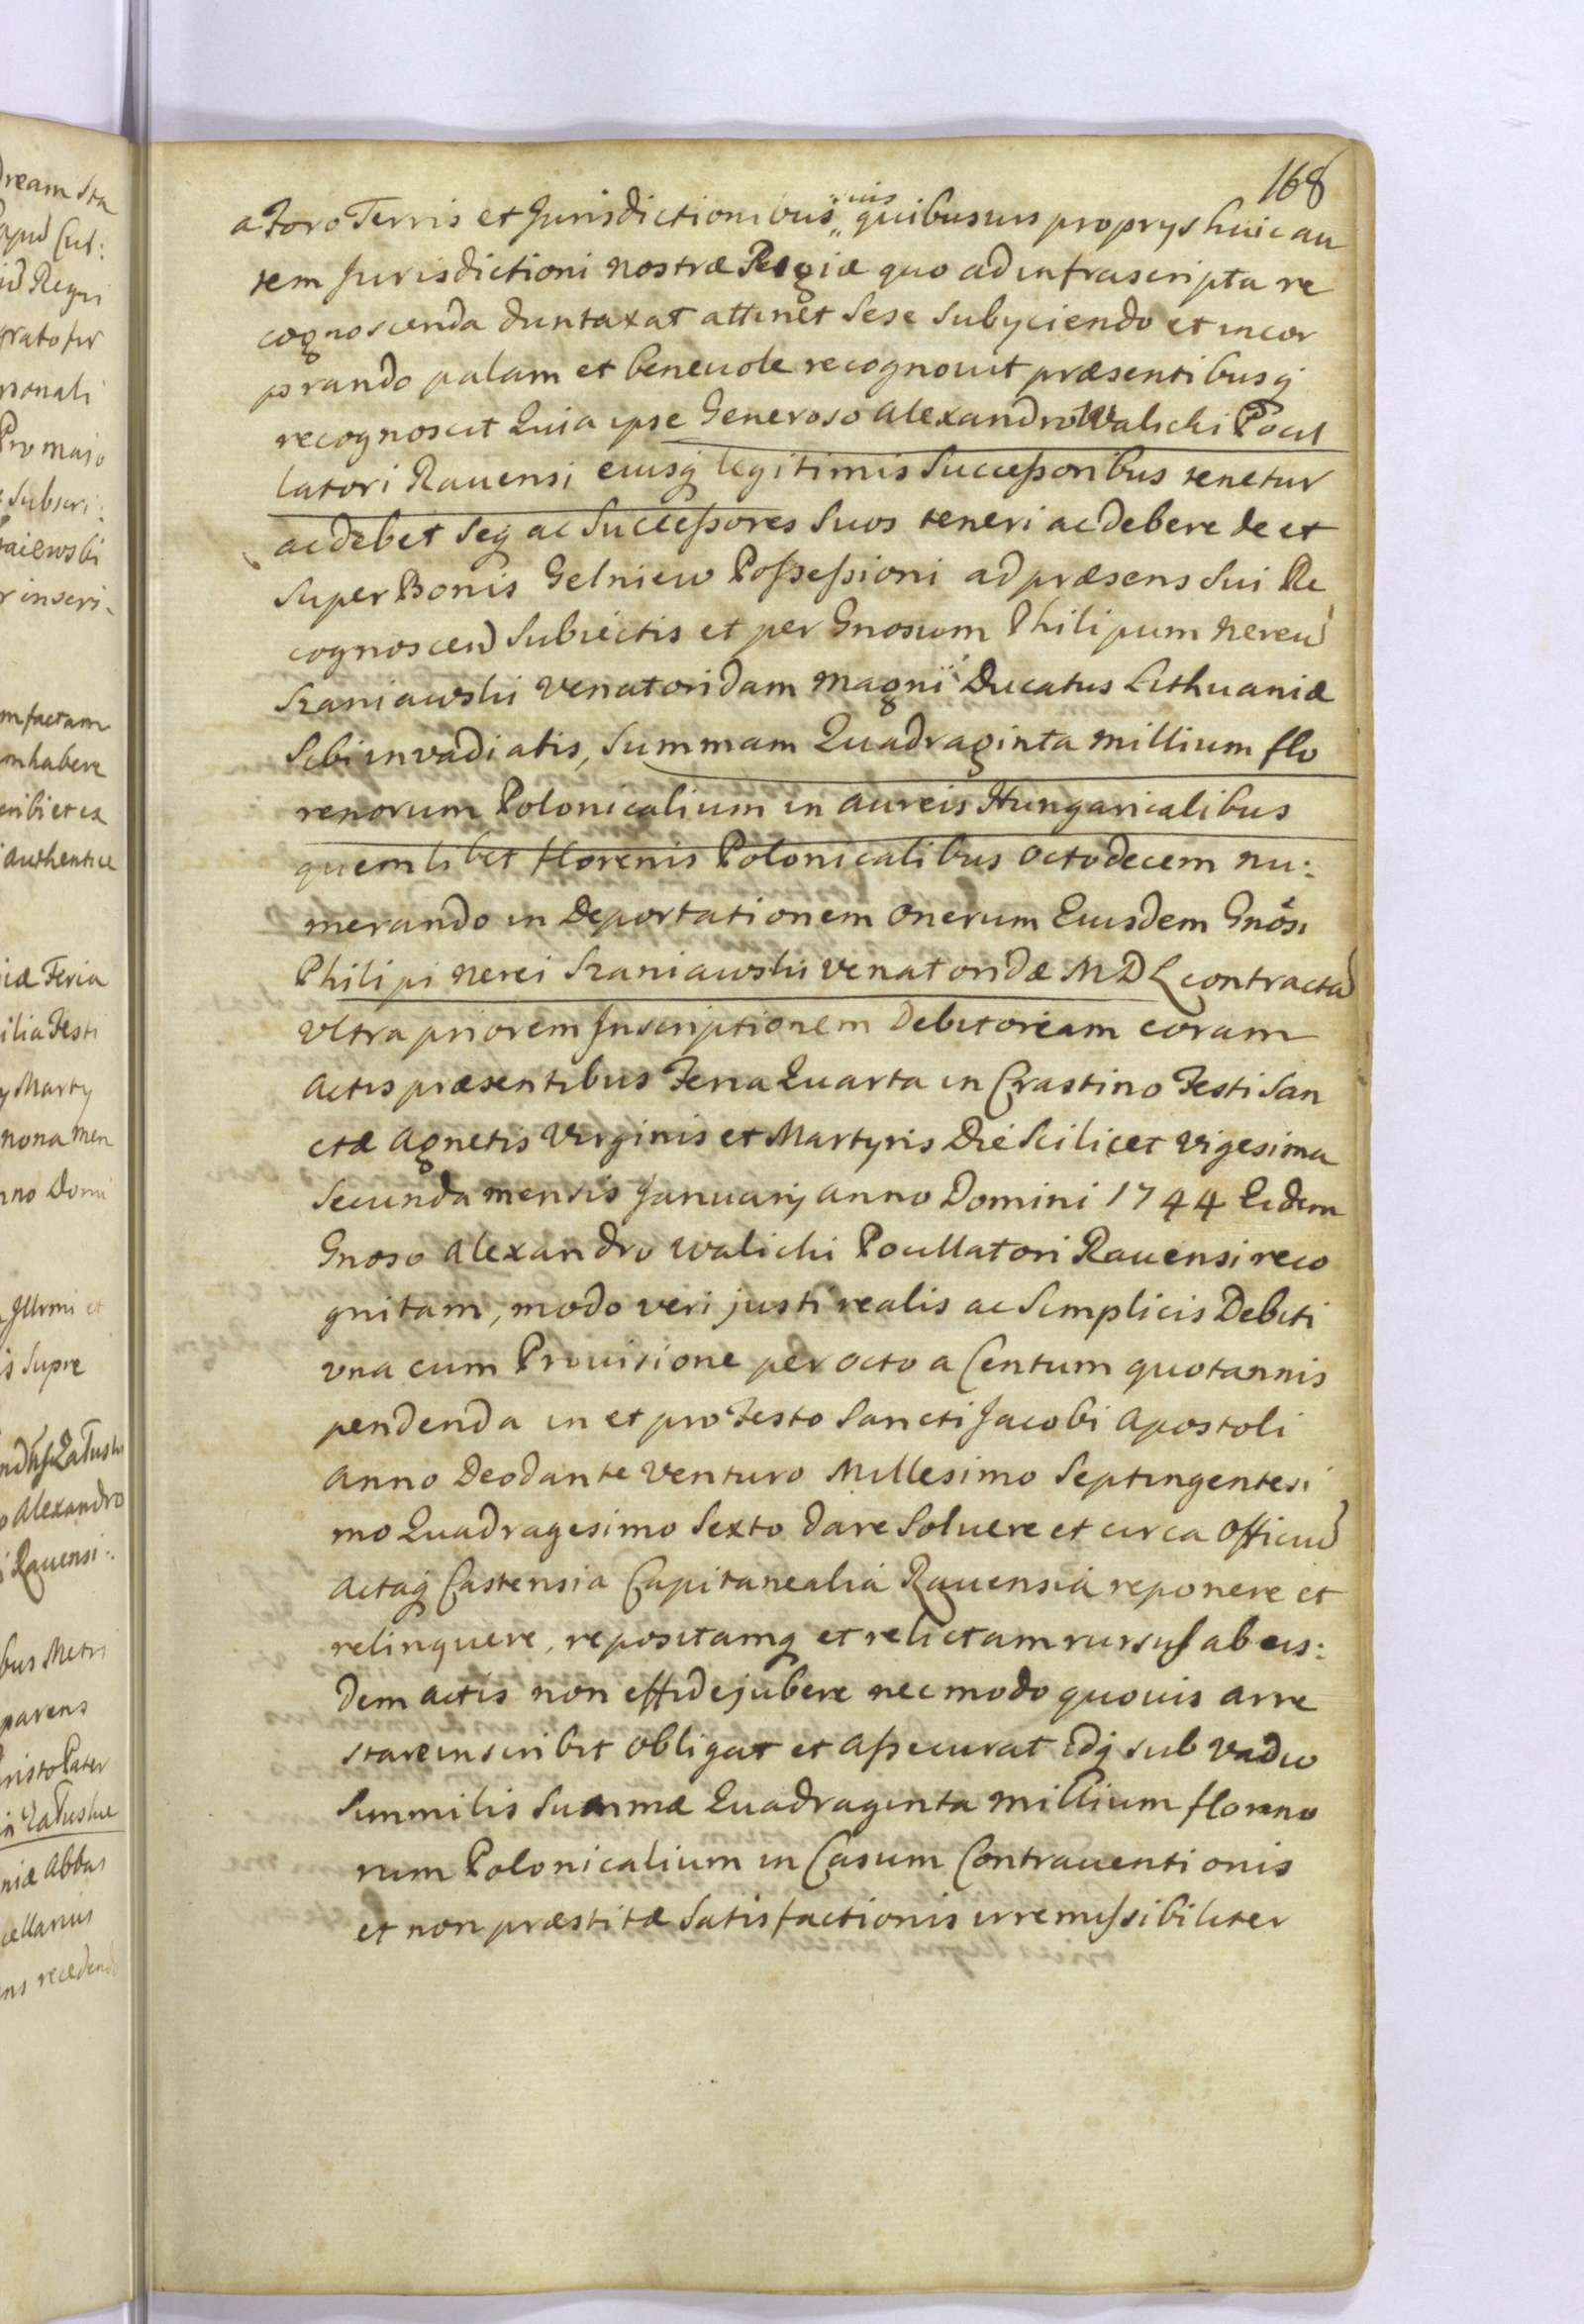 168
a Foro Terris et Jurisdictionibus suis quibusuis proprys huic au
tem Jurisdictioni nostræ Regiæ quo ad infrascripta re
cognoscenda duntaxat attinet sese subyciendo et incor
porando palam et beneuole recognouit præsentibusq
recognoscit Quia ipse Generoso Alexandro Walichi Pocul
latori Rauensi eiusq legitimis Succeſsoribus tenetur
ac debet seq ac Succeſsores Suos teneri ac debere de et
super Bonis Gelniew Poſseſsioni ad præsens sui Re
cognoscen subiectis et per Gnosum Philipum Nereu
Szaniawski Venatoridam Magni Ducatus Lithuaniæ
Sibi invadiatis, Summam Quadraginta Millium flo
renorum Polonicalium in Aureis Hungaricalibus
quemlibet florenis Polonicalibus octodecem nu:
merando in Deportationem Onerum Eiusdem Gnosi
Philipi Nerei Szaniawski Venatoridæ MDL contracta
Vltra priorem Inscriptionem Debitoream coram
Actis præsentibus Feria Quarta in Crastino Festi San
ctæ Agnetis Virginis et Martyris Die Scilicet Vigesima
Secunda mensis Januarij anno Domini 1744 Eidem
Gnoso Alexandro Walichi Pocullatori Rauensi reco
gnitam, modo veri justi realis ac Simplicis Debiti
vna cum Prouisione per octo a Centum quotannis
pendenda in et pro Festo Sancti Jacobi Apostoli
Anno Deodante Venturo Millesimo Septingentesi
mo Quadragesimo Sexto dare Soluere et circa Officiu
Actaq Castensia Capitanealia Rauensia reponere et
relinquere, repositamq et relictam rursus ab eis:
dem actis non effidejubere nec modo quouis arre
stare inscribit obligat et aſsecurat idq sub vadio
Simmilis Summæ Quadraginta Millium floreno
rum Polonicalium in Casum Contrauentionis
et non præstitæ Satisfactionis irremiſsibiliter